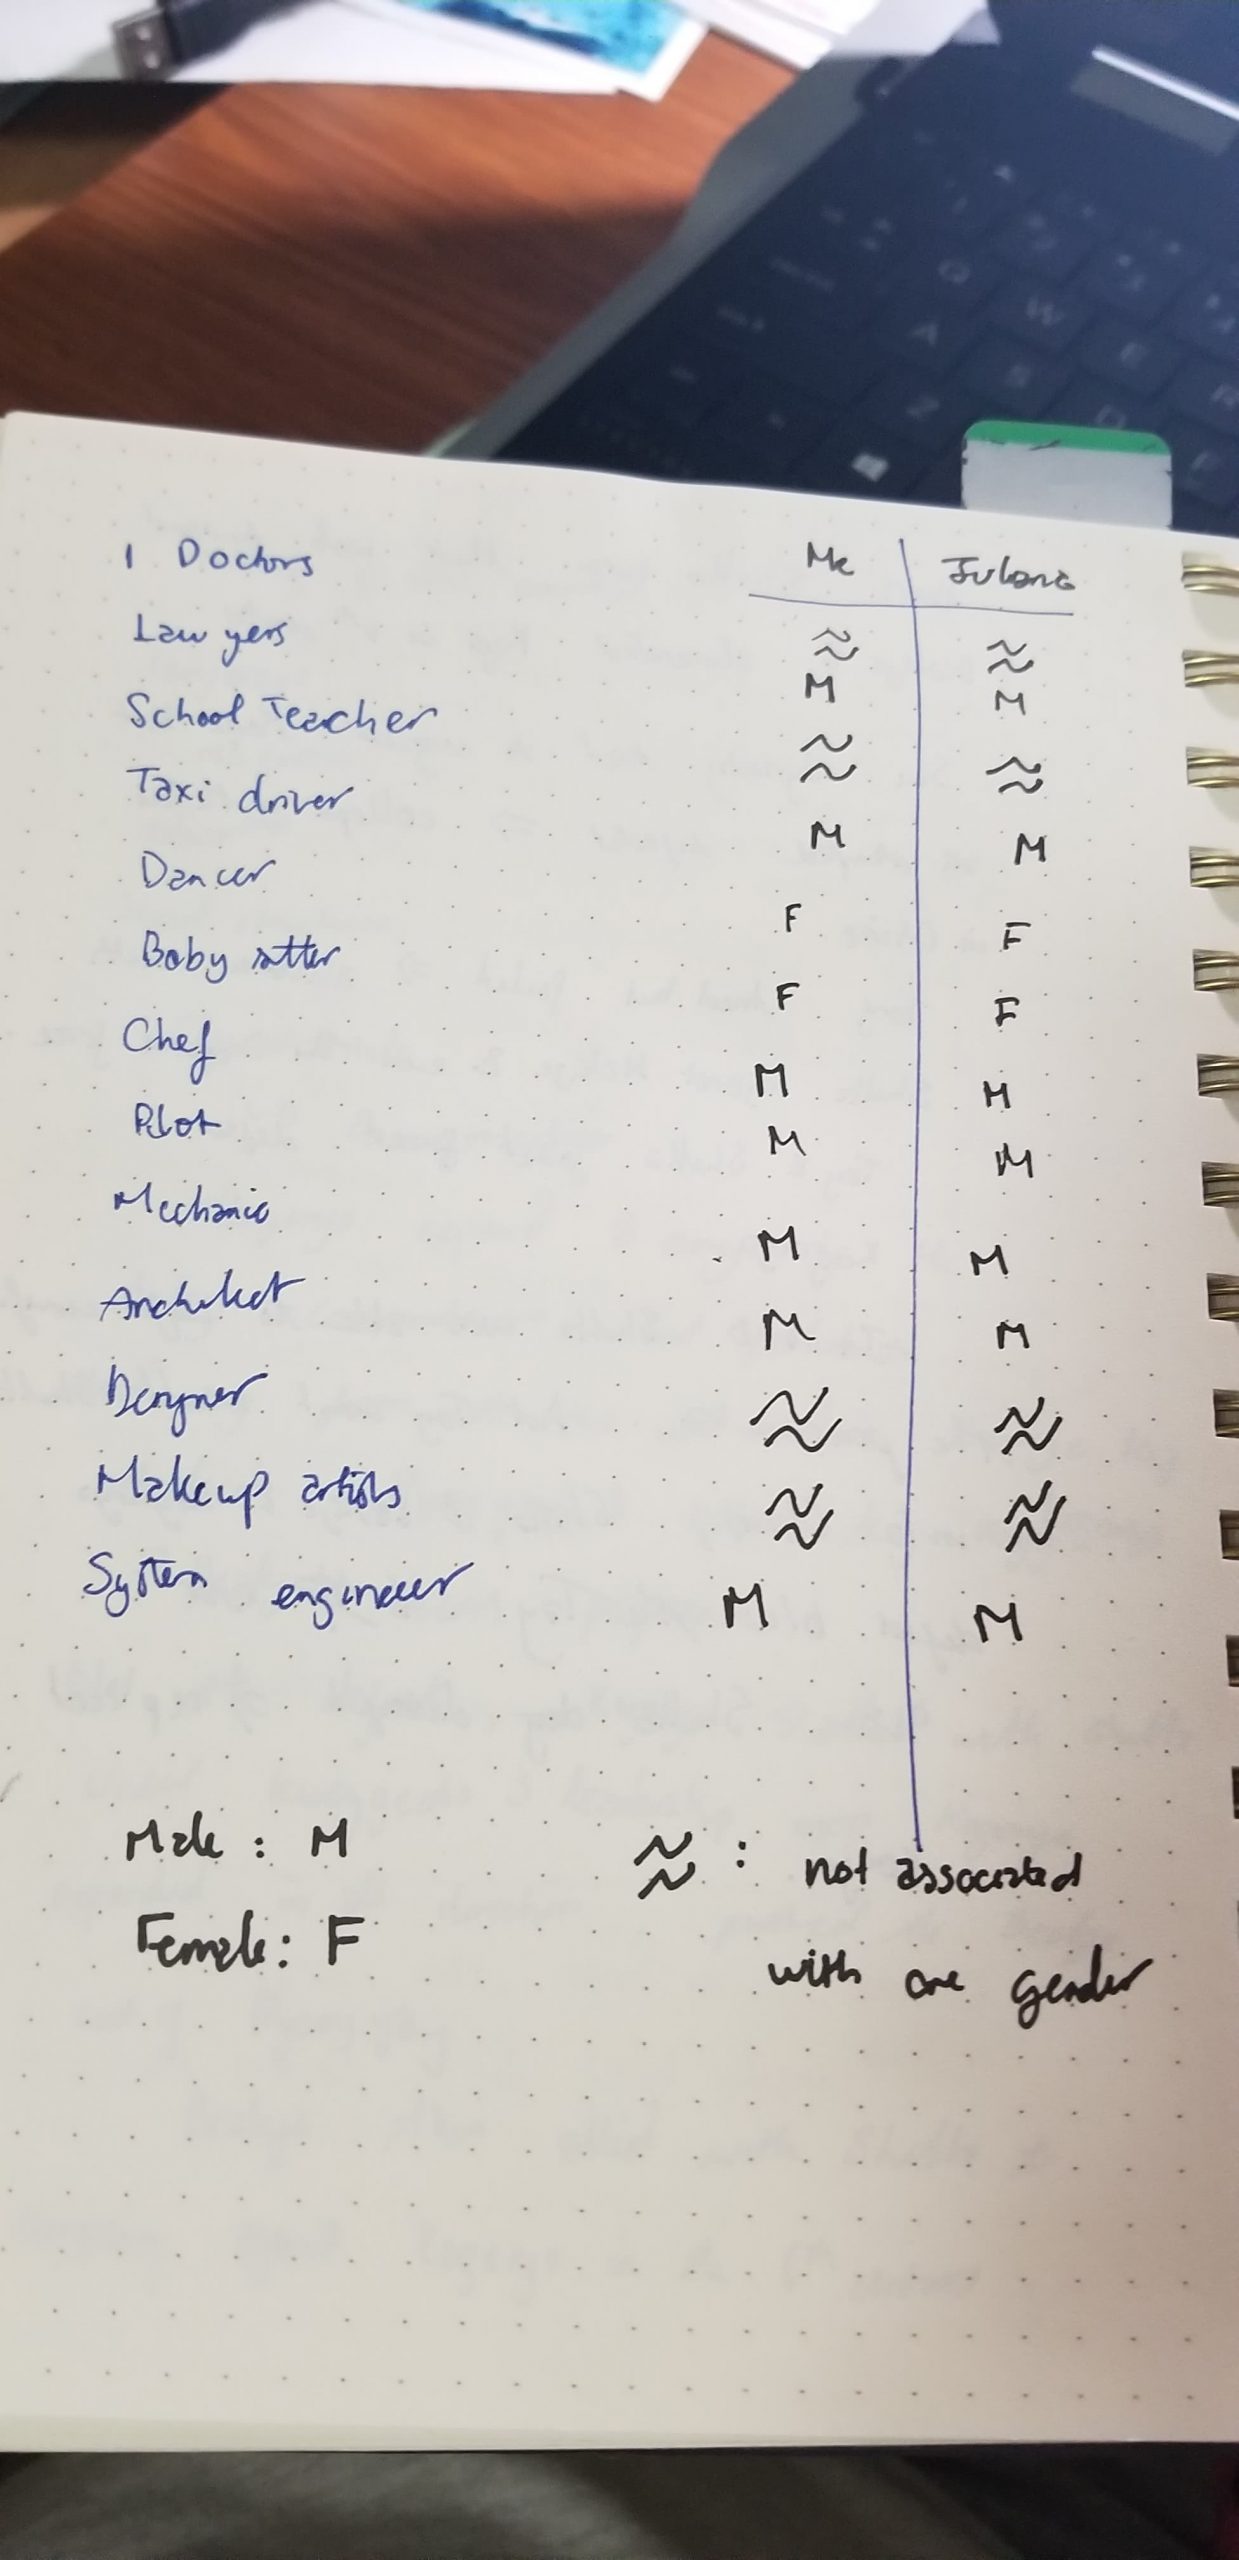 1 Doctors Me Juliana
Lawyers ≈ ≈
M M
School Teacher
≈ ≈
Taxi driver
M M
Dancer
F F
Baby sitter
F F
Chef
M M
Pilot M M
Mechanic
M M
Architect
M M
Designer ≈ ≈
Makeup artists ≈ ≈
System engineer M M
Male : M ≈ : not associated
Female : F with one gender